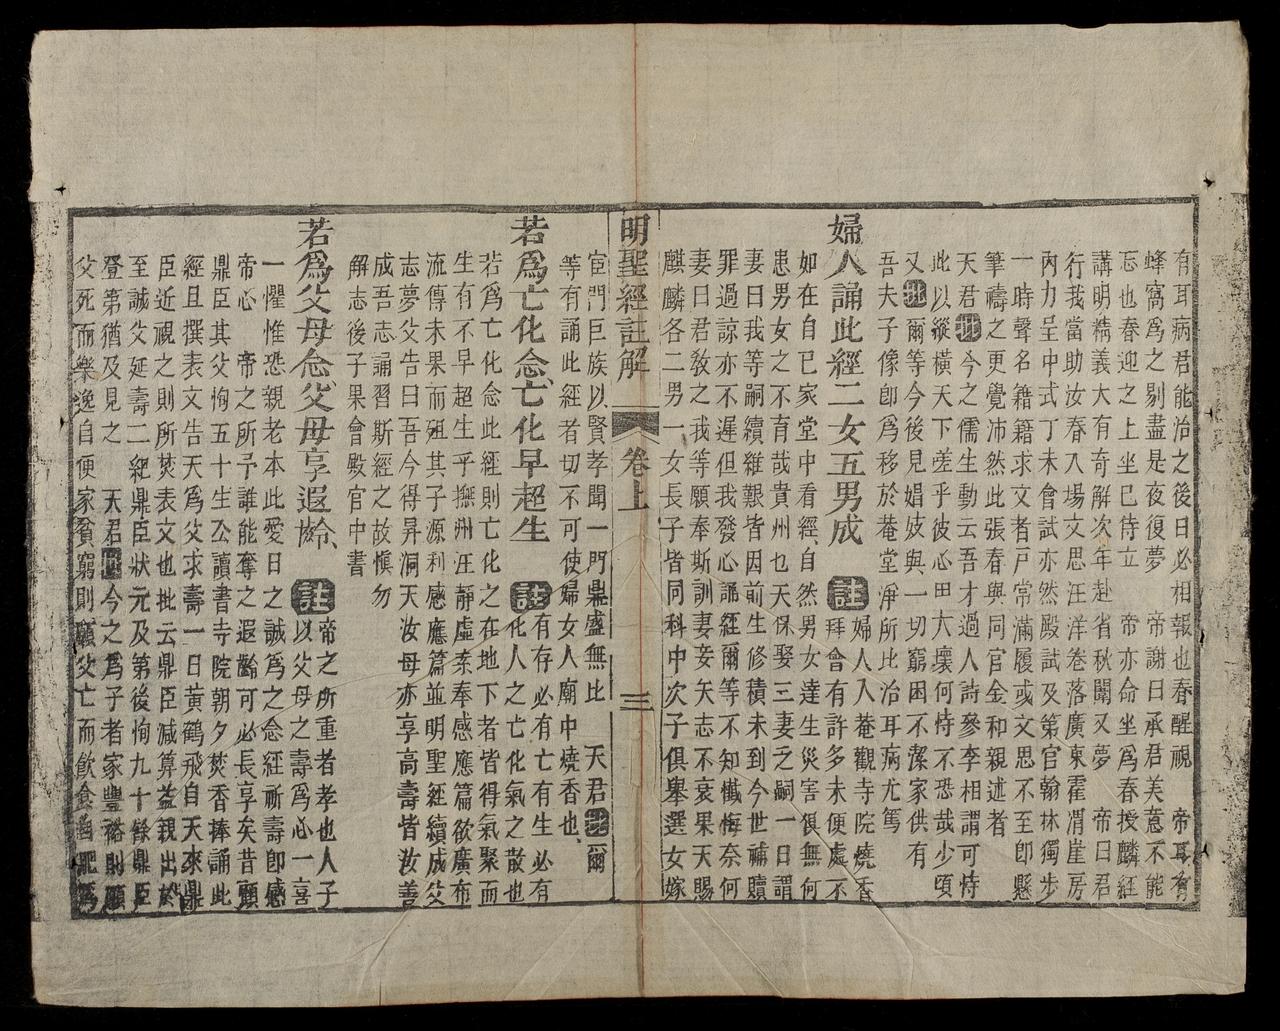 有耳病君能治之後日必相報也春醒視　帝耳
蜂窩爲之剔盡是夜復夢　帝謝曰承君美意不能
忘也春迎之上坐已侍立　帝亦命坐爲春授麟經
講明精義大有奇解次年赴省秋闈又夢　帝曰君
行我當助汝春入場文思汪洋卷落廣東霍渭崖房
內力呈中式丁未會試亦然殿試及第官翰林獨步
一時聲名籍籍求文者戶常滿履或文思不至卽懸
筆禱之更覺沛然此張春與同官金和親述者
天君批今之儒生動云吾才過人詩參李相謂可恃
此以縱橫天下差乎彼心田大壞何恃不恐哉少頃
又批爾等今後見娼妓與一切窮困不潔家供有
吾夫子像卽爲移於菴堂淨所比治耳病尤篤
婦人誦此經二女五男成
註婦人入菴觀寺院燒香
拜會有許多未便處不
如在自已家堂中看經自然男女達生災害俱無何
患男女之不有哉貴州也天保娶三妻乏嗣一日謂
妻曰我等嗣續維艱皆因前生修積未到今世補贖
罪過諒亦不遲但我發心誦經爾等不知懺悔奈何
妻曰君敎之我等願奉斯訓妻妾矢志不衰果天賜
麒麟各二男一女長子皆同科中次子俱舉選女嫁
明聖經註解　卷上　三
宦門巨族以賢孝聞一門鼎盛無比　天君批爾
等有誦此經者切不可使婦女人廟中燒香也
若爲亡化念亡化早超生
註有存必有亡有生必有
化人之亡化氣之散也
若爲亡化念此經則亡化之在地下者皆得氣聚而
生有不早超生乎撫洲汪靜虛素奉感應篇欲廣布
流傳未果而殂其子源利感應篇並明聖經續成父
志夢父告曰吾今得昇洞天汝母亦享高壽皆汝善
成吾志誦習斯經之故愼勿
解志後子果會殿官中書
若爲父母念父母享遐齡
註帝之所重者孝也人子
以父母之壽爲心一喜
一懼惟恐親老本此愛日之誠爲之念經祈壽卽感
帝心　帝之所予誰能奪之遐齡可必長享矣昔顧
鼎臣其父恂五十生公讀書寺院朝夕焚香捧誦此
經且撰表文告天爲父求壽一日黃鶴飛自天來鼎
臣近視之則所焚表文也批云鼎臣減算益親出於
至誠父延壽二紀鼎臣狀元及第後恂九十餘鼎臣
登第猶及見之　天君批今之爲子者家豐裕則願
父死而樂逸自便家貧窮則願父亡而飲食